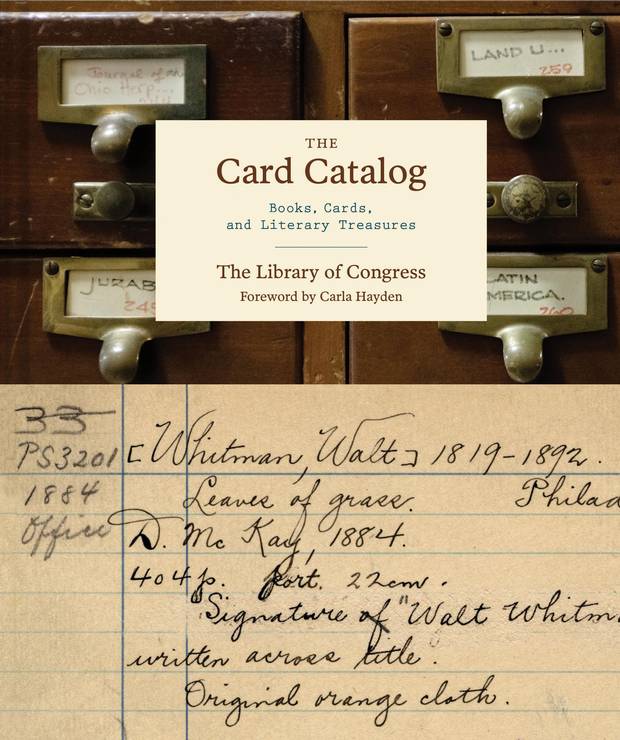 Journal of an
Ohio Herp...
LAND U...
259
THE
Card Catalog
Books, Cards,
and Literary Treasures
The Library of Congress
Foreword by Carla Hayden
JUZAB
245
LATIN
MERICA.
260
33
PS3201
1884
Office
[Whitman, Walt] 1819-1892.
Leaves of grass. Philad
D. Mc Kay, 1884.
404 p. port. 22 cm.
Signature of "Walt Whitm
written across title.
Original orange cloth.